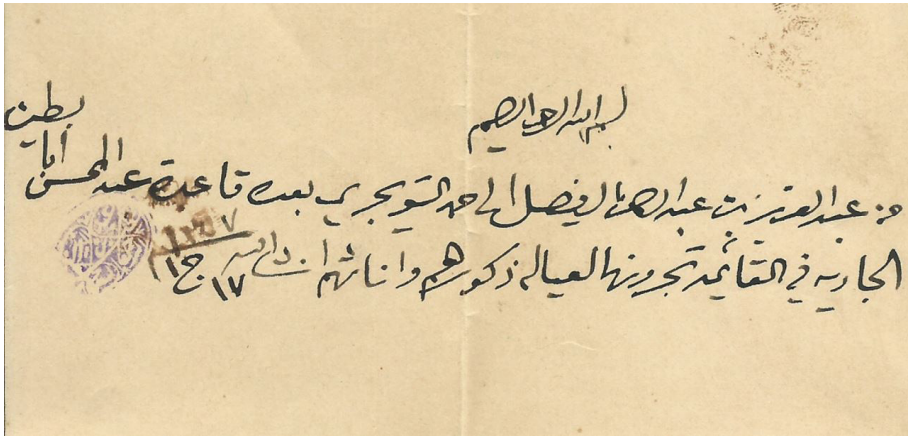 بسم الله الرحمن الرحيم
من عبد العزيز بن عبد الرحمن الفيصل الى حمد التويجري بعده قاعدة عبد المحسن ابا بطين
الجاريه في القائمه تجرونها لعياله ذكورهم واناثهم ان شاء الله ١٧ ج ١